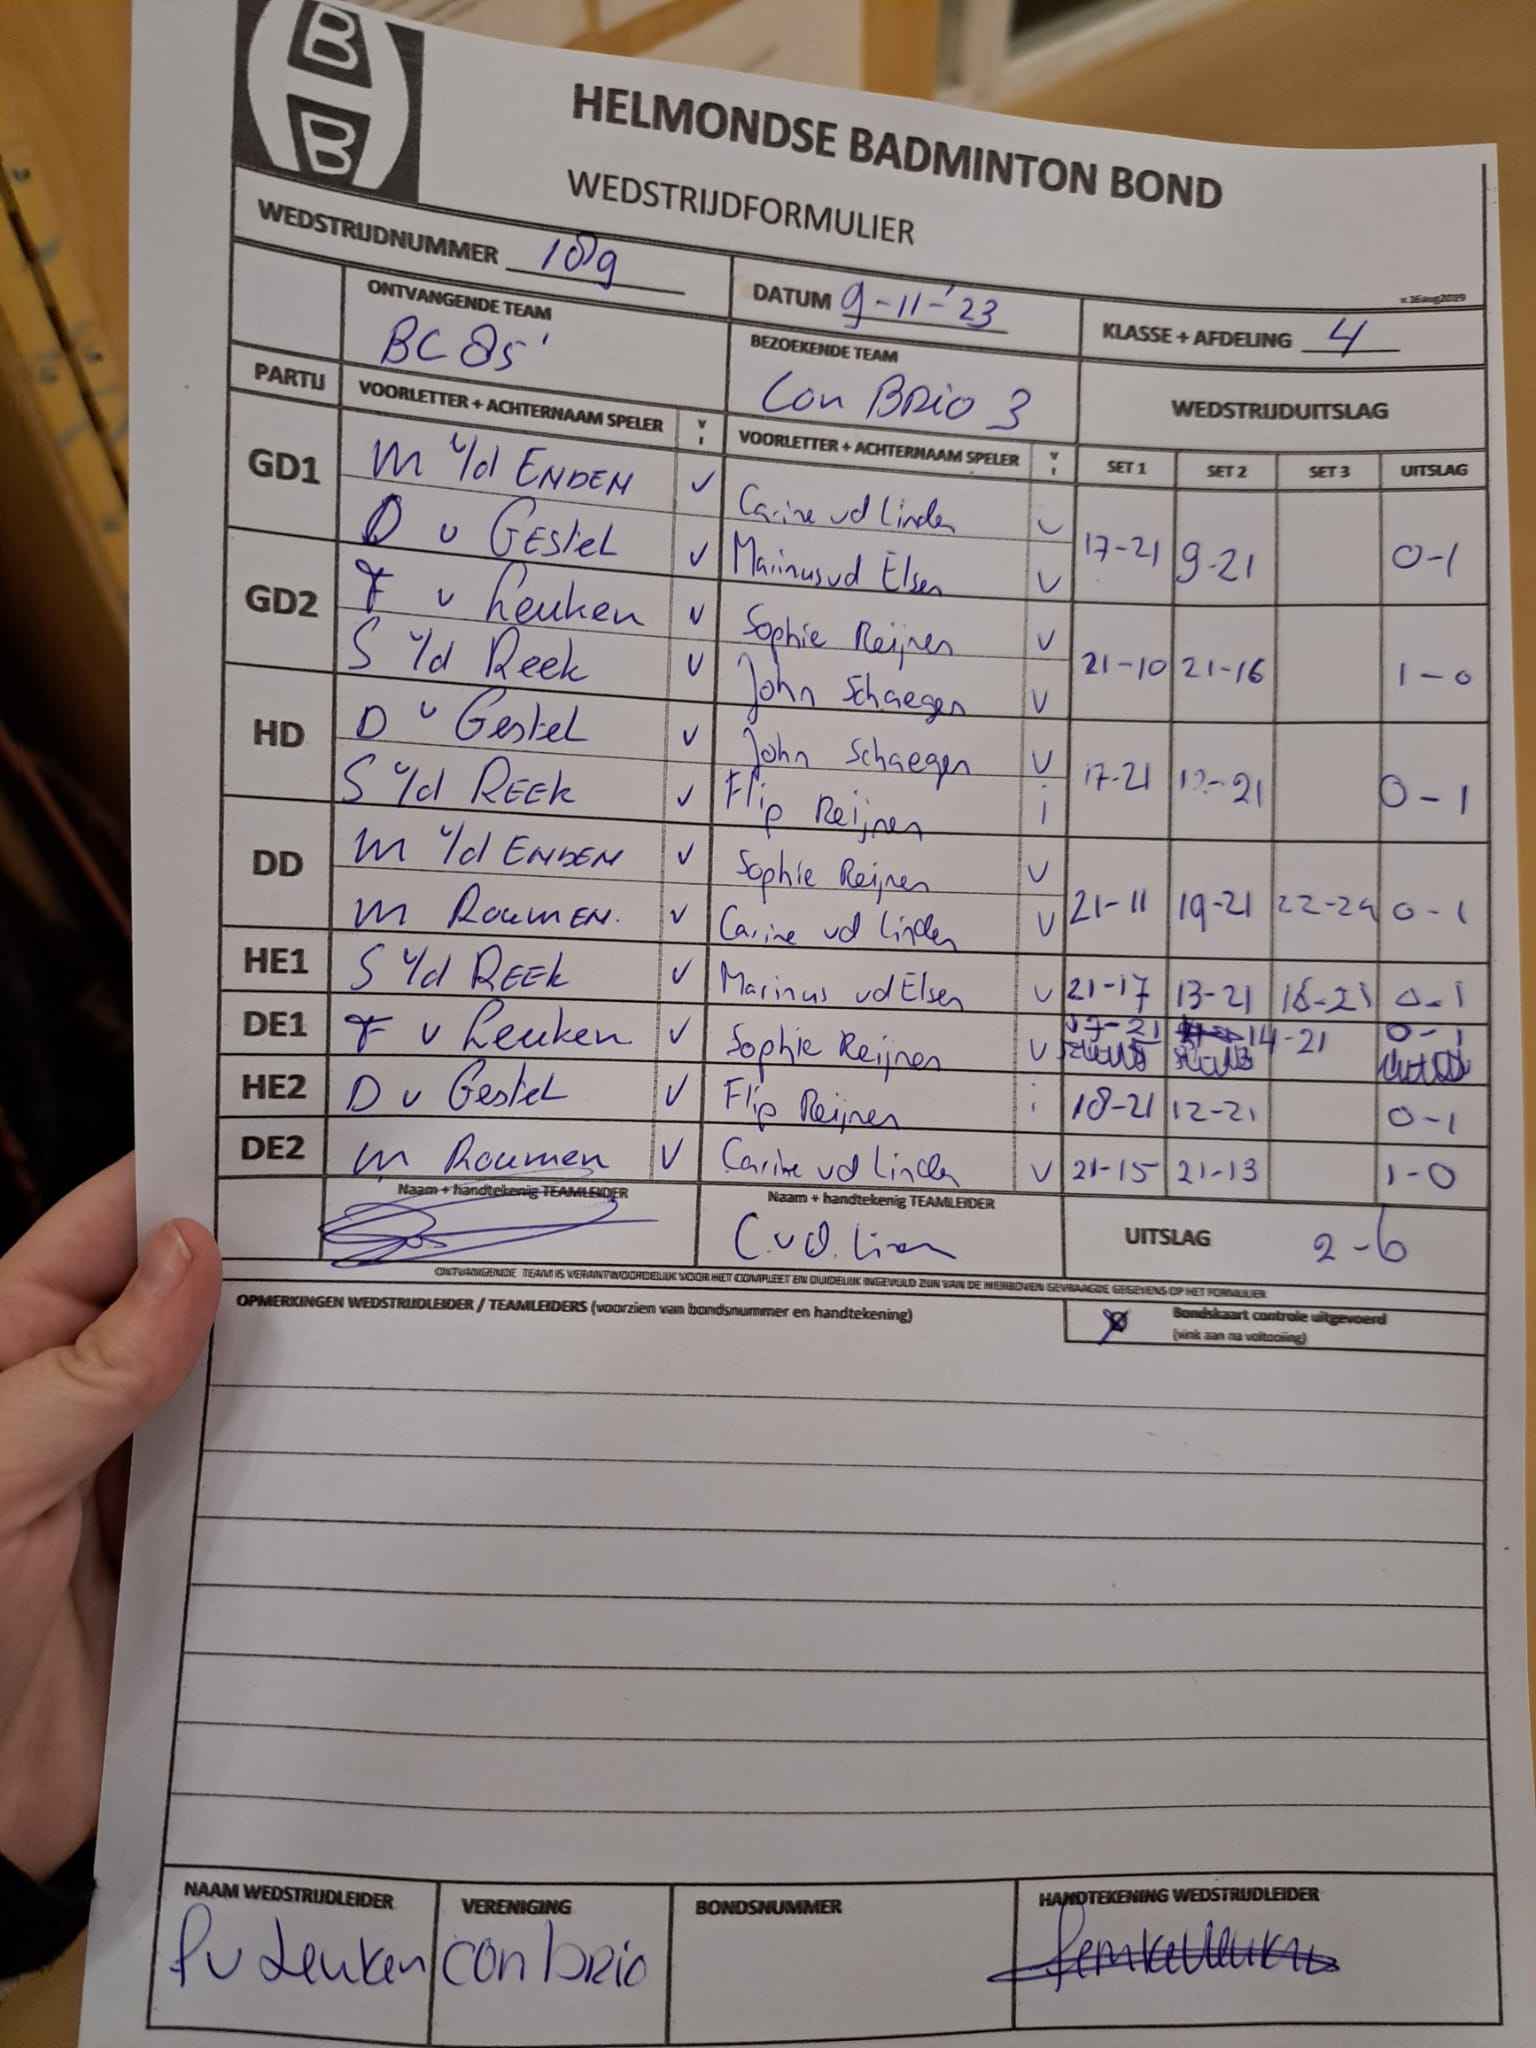 B
B
HELMONDSE BADMINTON BOND
WEDSTRIJDFORMULIER
v.16aug2019
WEDSTRIJDNUMMER 189
DATUM 9-11-'23
KLASSE + AFDELING 4
ONTVANGENDE TEAM
BC 85'
BEZOEKENDE TEAM
Con BRio 3
WEDSTRIJDUITSLAG
PARTIJ VOORLETTER + ACHTERNAAM SPELER V I VOORLETTER + ACHTERNAAM SPELER V I SET 1 SET 2 SET 3 UITSLAG
GD1 M v/d ENDEN v Carine vd Linden v
D v GEStEL v Marinus vd Elsen v 17-21 9-21 0-1
GD2 F v Leuken v Sophie Reijnen v
S v/d Reek v John Schaegen v 21-10 21-16 1-0
HD D v Gestel v John Schaegen v
S v/d REEK v Flip Reijnen i 17-21 -21 0-1
DD M v/d ENDEN v Sophie Reijnen v
M ROUMEN. v Carine vd Linden v 21-11 19-21 22-24 0-1
HE1 S v/d REEK v Marinus vd Elsen v 21-17 13-21 18-21 0-1
DE1 F v Leuken v Sophie Reijnen v 17-21 14-21 0-1
HE2 D v Gestel v Flip Reijnen i 18-21 12-21 0-1
DE2 M Roumen v Carine vd Linden v 21-15 21-13 1-0
Naam + handtekenig TEAMLEIDER
Naam + handtekenig TEAMLEIDER
C.v.d. Linden
UITSLAG 2-6
ONTVANGENDE TEAM IS VERANTWOORDELIJK VOOR HET COMPLEET EN DUIDELIJK INGEVULD ZIJN VAN DE HIERBOVEN GEVRAAGDE GEGEVENS OP HET FORMULIER
OPMERKINGEN WEDSTRIJDLEIDER / TEAMLEIDERS (voorzien van bondsnummer en handtekening)
Bondskaart controle uitgevoerd
(vink aan na voltooiing)
NAAM WEDSTRIJDLEIDER
F v Leuken
VERENIGING
con brio
BONDSNUMMER
HANDTEKENING WEDSTRIJDLEIDER